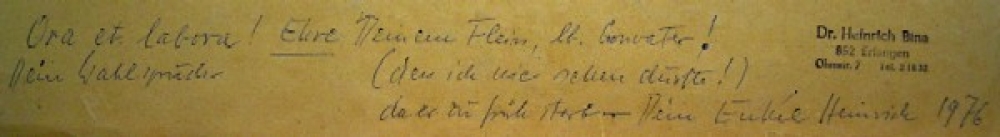 Ora et labora! Ehre Deinem Fleis, lb. Gonvater!
Dein Wahlspruch
(den ich nie sehen durfte!)
da er zu früh starb — Dein Enkel Heinrich 1976
Dr. Heinrich Bina
852 Erlangen